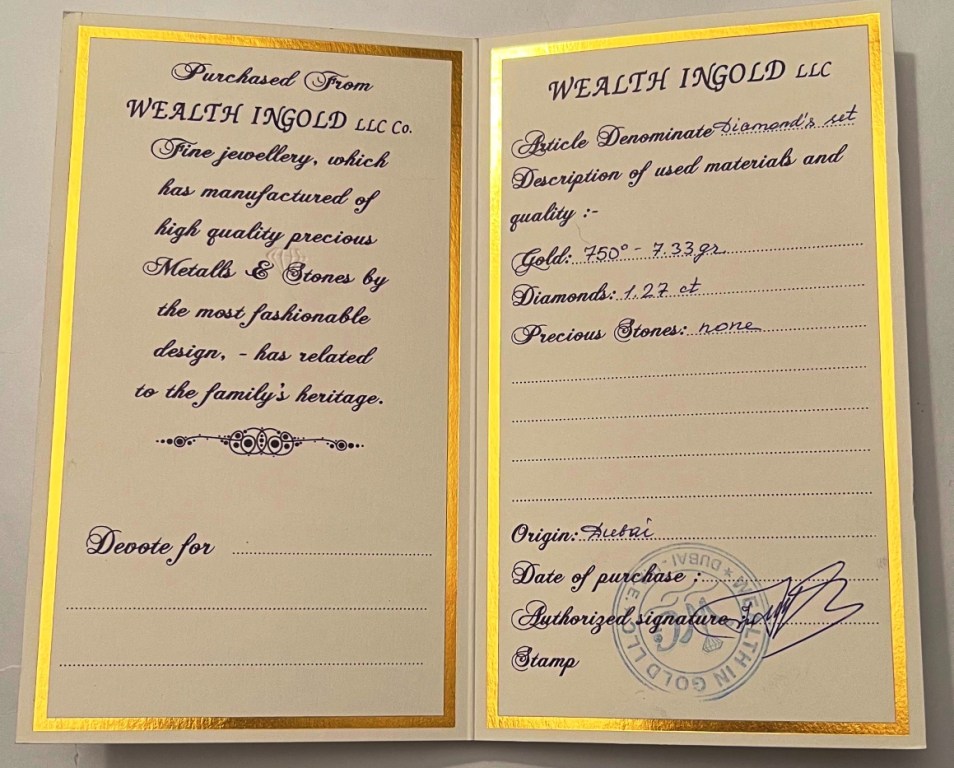 Purchased From
WEALTH INGOLD LLC Co.
Fine jewellery, which
has manufactured of
high quality precious
Metalls & Stones by
the most fashionable
design, - has related
to the family's heritage.
Devote for
WEALTH INGOLD LLC
Article Denominate Diamond's set
Description of used materials and
quality :-
Gold: 750° - 7.33gr
Diamonds: 1.27 ct
Precious Stones: none
Origin: Dubai
Date of purchase :
Authorized signature
Stamp
WEALTH IN GOLD LLC ★ DUBAI - U.A.E. ★